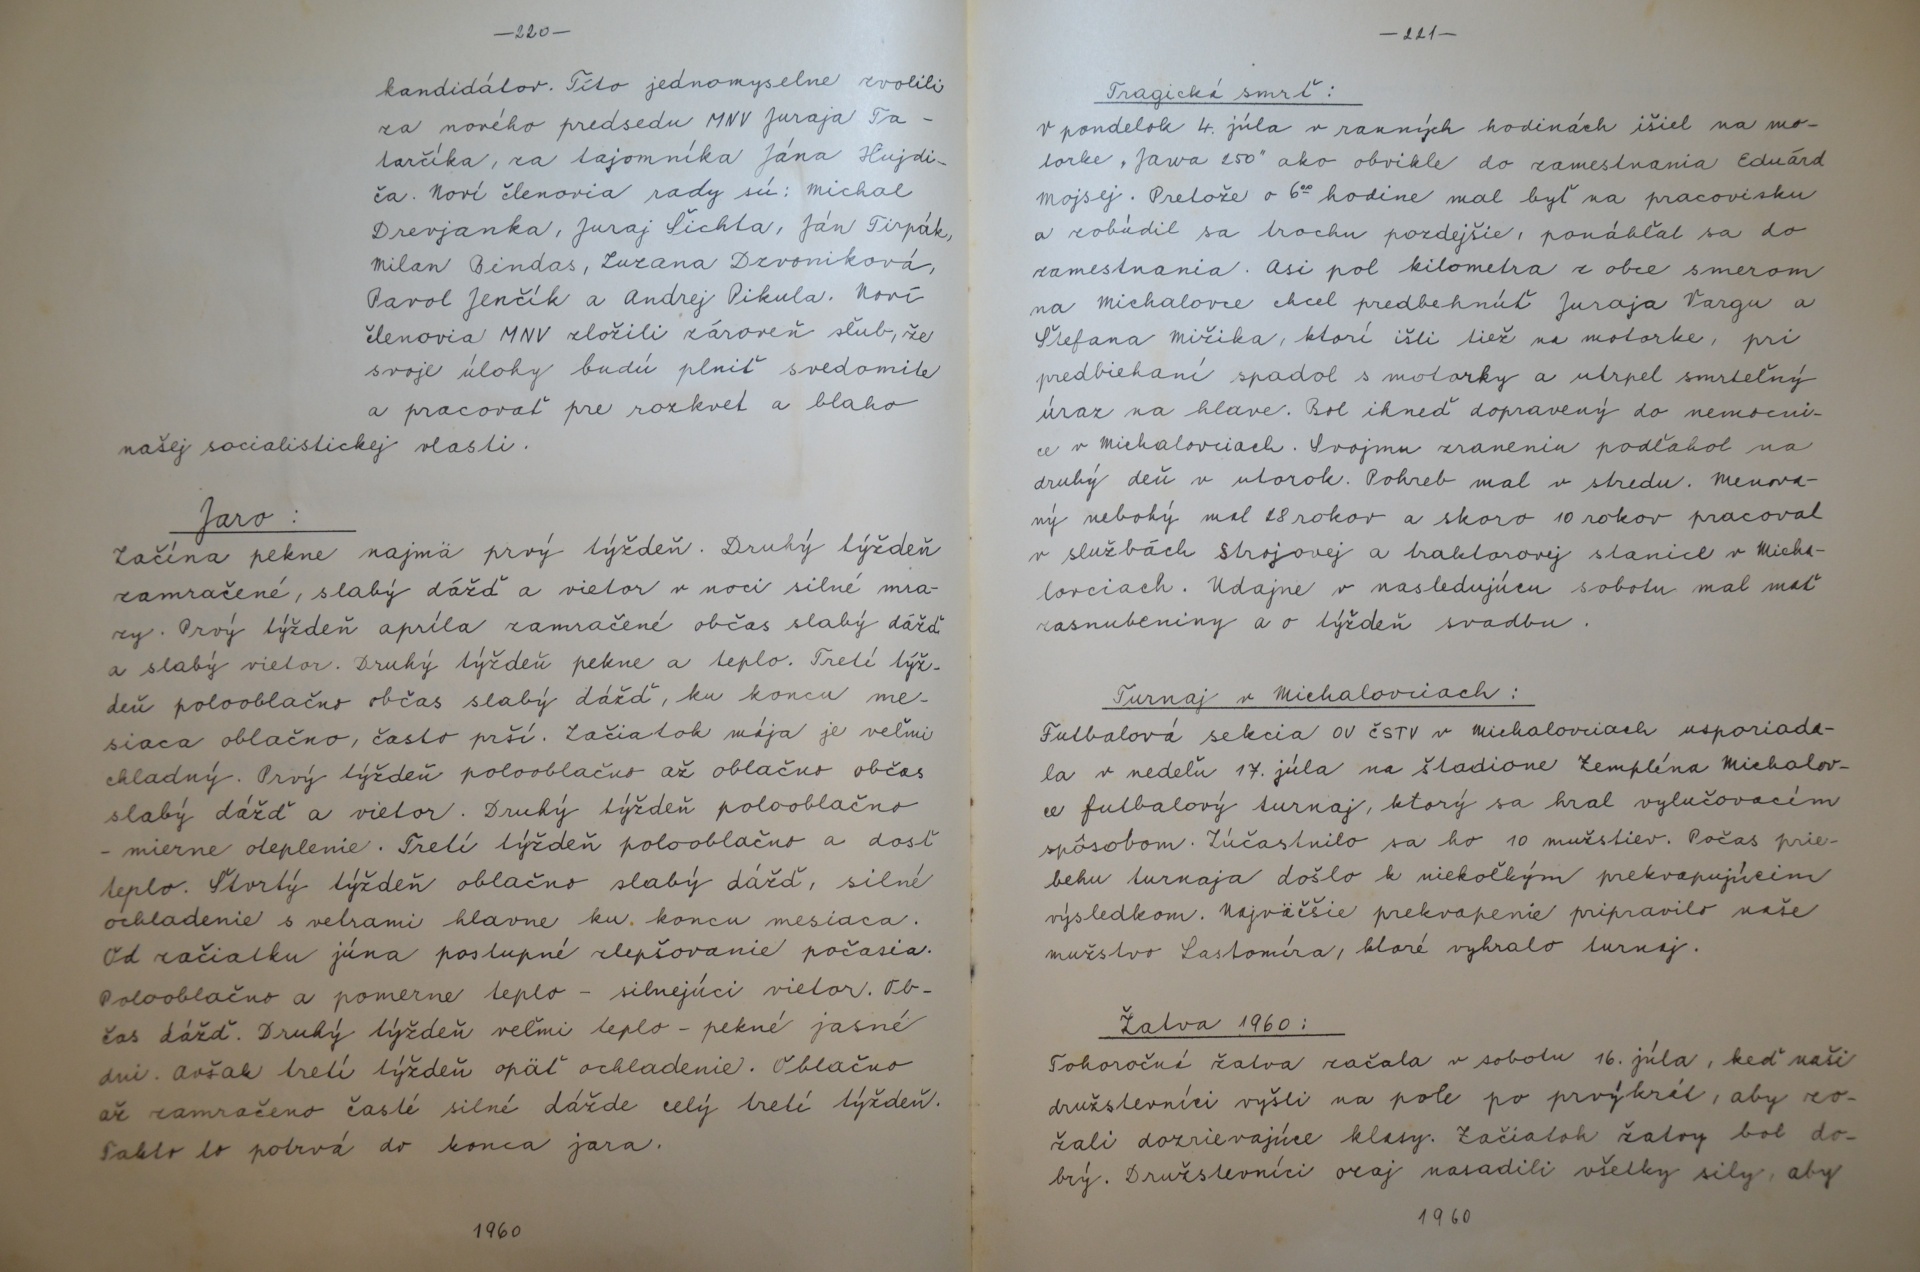 —220—
kandidátov. Títo jednomyselne zvolili
za nového predsedu MNV Juraja Ta-
tarčíka, za tajomníka Jána Hujdi-
ča. Noví členovia rady sú: Michal
Drevjanka, Juraj Šichta, Ján Tirpák,
Milan Bindas, Zuzana Dzvoniková,
Pavol Jenčík a Andrej Pikula. Noví
členovia MNV zložili zároveň sľub, že
svoje úlohy budú plniť svedomite
a pracovať pre rozkvet a blaho
našej socialistickej vlasti.
Jaro:
Začína pekne najmä prvý týždeň. Druhý týždeň
zamračené, slabý dážď a vietor v noci silné mra-
zy. Prvý týždeň apríla zamračené občas slabý dážď
a slabý vietor. Druhý týždeň pekne a teplo. Tretí týž-
deň polooblačno občas slabý dážď, ku koncu me-
siaca oblačno, často prší. Začiatok mája je veľmi
chladný. Prvý týždeň polooblačno až oblačno občas
slabý dážď a vietor. Druhý týždeň polooblačno
- mierne oteplenie. Tretí týždeň polooblačno a dosť
teplo. Štvrtý týždeň oblačno slabý dážď, silné
ochladenie s vetrami hlavne ku koncu mesiaca.
Od začiatku júna postupné zlepšovanie počasia.
Polooblačno a pomerne teplo - silnejúci vietor. Ob-
čas dážď. Druhý týždeň veľmi teplo - pekné jasné
dni. Avšak tretí týždeň opäť ochladenie. Oblačno
až zamračeno časté silné dážde celý tretí týždeň.
Takto to potrvá do konca jara.
1960
—221—
Tragická smrť:
V pondelok 4. júla v ranných hodinách išiel na mo-
torke „Jawa 250" ako obvikle do zamestnania Eduárd
Mojsej. Pretože o 6⁰⁰ hodine mal byť na pracovisku
a zobúdil sa trochu pozdejšie, ponáhľal sa do
zamestnania. Asi pol kilometra z obce smerom
na Michalovce chcel predbehnúť Juraja Vargu a
Štefana Mižika, ktorí išli tiež na motorke, pri
predbiehaní spadol s motorky a utrpel smrteľný
úraz na hlave. Bol ihneď dopravený do nemocni-
ce v Michalovciach. Svojmu zraneniu podľahol na
druhý deň v utorok. Pohreb mal v stredu. Menova-
ný nebohý mal 28 rokov a skoro 10 rokov pracoval
v službách Strojovej a traktorovej stanice v Micha-
lovciach. Udajne v nasledujúcu sobotu mal mať
zasnubeniny a o týždeň svadbu.
Turnaj v Michalovciach:
Futbalová sekcia OV ČSTV v Michalovciach usporiada-
la v nedeľu 17. júla na štadione Zemplína Michalov-
ce futbalový turnaj, ktorý sa hral vylučovacím
spôsobom. Zúčastnilo sa ho 10 mužstiev. Počas prie-
behu turnaja došlo k niekoľkým prekvapujúcim
výsledkom. Najväčšie prekvapenie pripravilo naše
mužstvo Lastomíra, ktoré vyhralo turnaj.
Žatva 1960:
Tohoročná žatva začala v sobotu 16. júla, keď naši
družstevníci vyšli na pole po prvýkrát, aby zo-
žali dozrievajúce klasy. Začiatok žatvy bol do-
brý. Družstevníci ozaj nasadili všetky sily, aby
1960